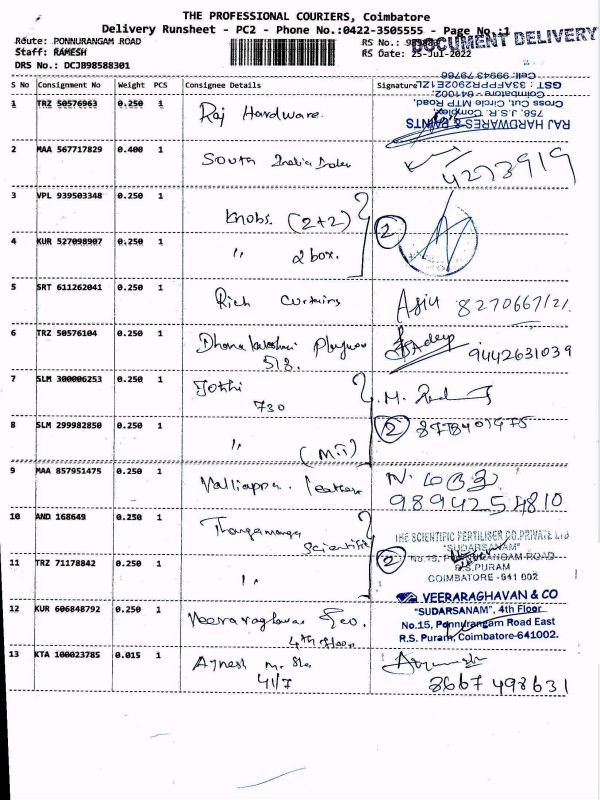 THE PROFESSIONAL COURIERS, Coimbatore
Delivery Runsheet - PC2 - Phone No.:0422-3505555 - Page No.:1
Route: PONNURANGAM ROAD
RS No.:
DOCUMENT DELIVERY
Staff: RAMESH
RS Date: 25-Jul-2022
DRS No.: DCJB98588301
S No Consignment No Weight PCS Consignee Details Signature
Cell: 99943 79766
GST : 33AFPPR2902E1ZL
Coimbatore - 641002.
Cross Cut, Circle MTP Road,
758, J.S.R. Complex,
RAJ HARDWARES & PAINTS
1 TRZ 50576963 0.250 1 Raj Hardware.
2 MAA 567717829 0.400 1 South India 4273919
3 VPL 939503348 0.250 1 Knobs. (2+2) 2
4 KUR 527098907 0.250 1 " 2 box.
5 SRT 611262041 0.250 1 Rich Curtains 8270667121
6 TRZ 50576104 0.250 1 518. 9442631039
7 SLM 300006253 0.250 1 Jothi M.
730
8 SLM 299982850 0.250 1 " 2
9 MAA 857951475 0.250 1 9894254810
10 AND 168649 0.250 1 Scientific
THE SCIENTIFIC FERTILISER CO.PRIVATE Ltd
"SUDARSANAM"
No.15, PONNURANGAM ROAD
R.S.PURAM
COIMBATORE - 641 002
11 TRZ 71178842 0.250 1 " 2
VEERARAGHAVAN & CO
"SUDARSANAM", 4th Floor
No.15, Ponnurangam Road East
R.S. Puram, Coimbatore-641002.
12 KUR 606848792 0.250 1 Veeraraghavan &co.
4th floor
13 KTA 100023785 0.015 1 41/7 8667498631